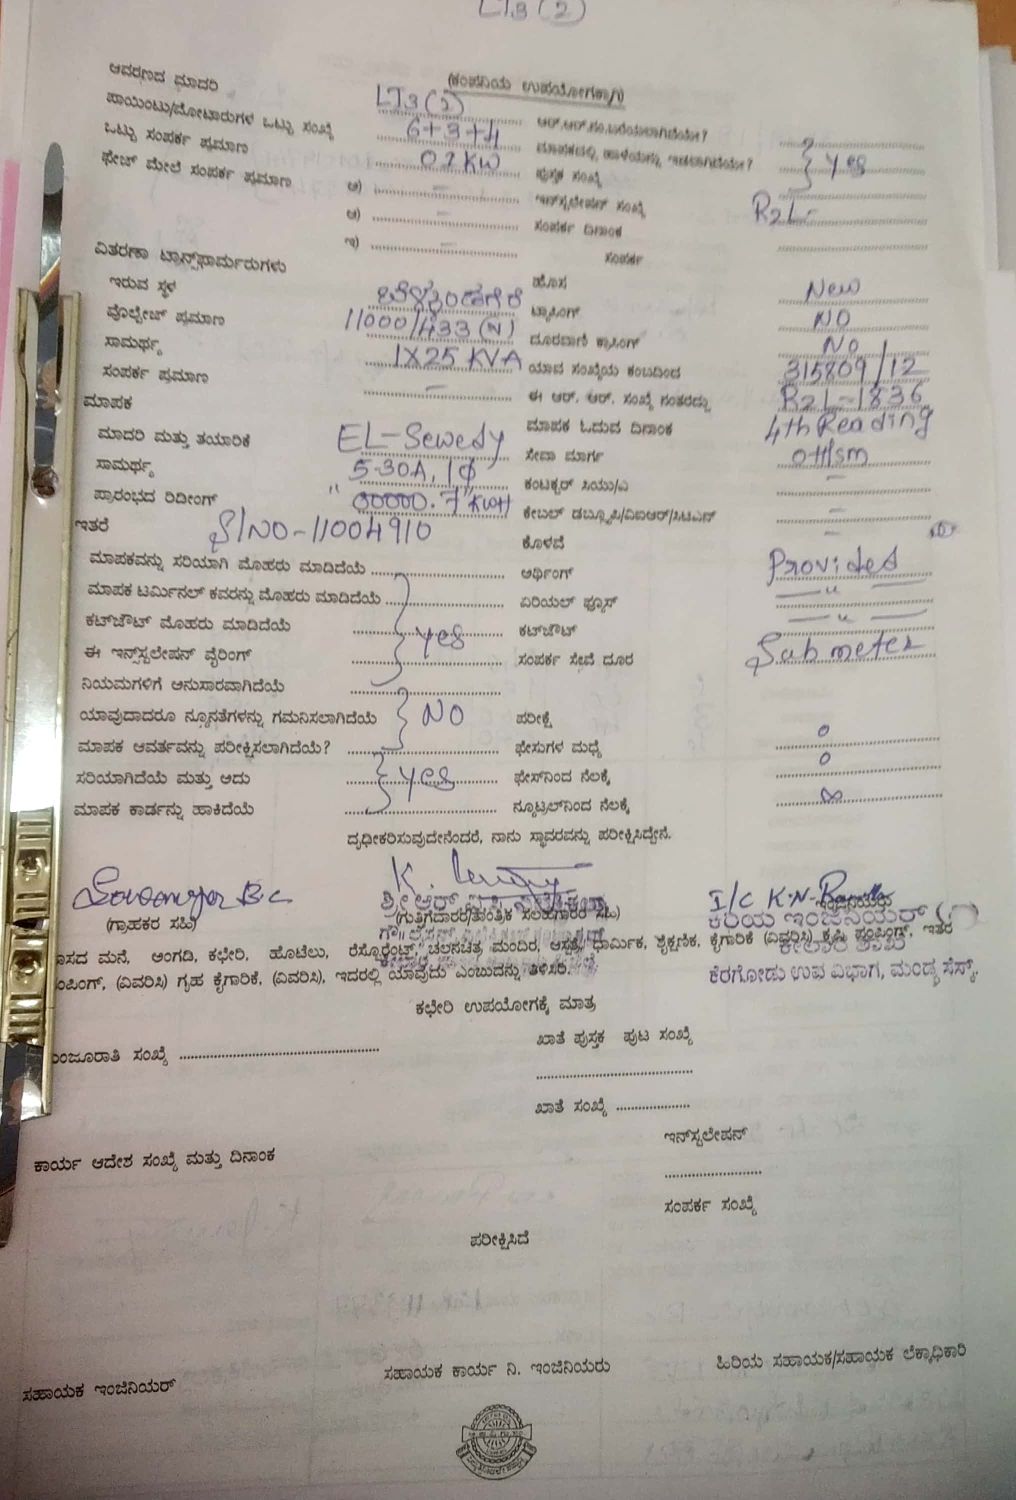 LT3(2)
(ಕಂಪನಿಯ ಉಪಯೋಗಕ್ಕಾಗಿ)
ಆವರಣದ ಮಾದರಿ LT3(2) ಆರ್.ಆರ್.ನಂ.ಬರೆಯಲಾಗಿದೆಯೇ?
ಪಾಯಿಂಟು/ಮೋಟಾರುಗಳ ಒಟ್ಟು ಸಂಖ್ಯೆ 6+3+4 ಮಾಪಕದಲ್ಲಿ ಹಾಳೆಯನ್ನು ಇಡಲಾಗಿದೆಯೇ? yes
ಒಟ್ಟು ಸಂಪರ್ಕ ಪ್ರಮಾಣ 02KW ಪುಸ್ತಕ ಸಂಖ್ಯೆ
ಫೇಜ್ ಮೇಲೆ ಸಂಪರ್ಕ ಪ್ರಮಾಣ ಅ) – ಇನ್‌ಸ್ಟಲೇಷನ್ ಸಂಖ್ಯೆ R2L-
ಆ) – ಸಂಪರ್ಕ ದಿನಾಂಕ
ಇ) – ಸಂಪರ್ಕ
ವಿತರಣಾ ಟ್ರಾನ್ಸ್‌ಫಾರ್ಮರುಗಳು
ಇರುವ ಸ್ಥಳ ಹೊಸ New
ವೋಲ್ಟೇಜ್ ಪ್ರಮಾಣ 11000/433(N) ಟ್ಯಾಪಿಂಗ್ NO
ಸಾಮರ್ಥ್ಯ 1X25 KVA ದೂರವಾಣಿ ಕ್ರಾಸಿಂಗ್ No
ಸಂಪರ್ಕ ಪ್ರಮಾಣ – ಯಾವ ಸಂಖ್ಯೆಯ ಕಂಬದಿಂದ 315809/12
ಮಾಪಕ ಈ ಆರ್. ಆರ್. ಸಂಖ್ಯೆ ನಂತರದ್ದು R2L-1836
ಮಾದರಿ ಮತ್ತು ತಯಾರಿಕೆ EL-Sewedy ಮಾಪಕ ಓದುವ ದಿನಾಂಕ 4th Reading
ಸಾಮರ್ಥ್ಯ 5-30A, 1ϕ ಸೇವಾ ಮಾರ್ಗ
ಪ್ರಾರಂಭದ ರಿಡೀಂಗ್ "00000.7" KWH ಕಂಟಕ್ಟರ್ ಸಿಯು/ಎ –
ಇತರೆ S/NO-11004910 ಕೇಬಲ್ ಡಬ್ಲ್ಯೂಪಿ/ವಿಐಆರ್/ಸಿಟಿಎನ್ –
ಕೊಳವೆ –
ಮಾಪಕವನ್ನು ಸರಿಯಾಗಿ ಮೊಹರು ಮಾಡಿದೆಯೆ ಅರ್ಥಿಂಗ್ Provided
ಮಾಪಕ ಟರ್ಮಿನಲ್ ಕವರನ್ನು ಮೊಹರು ಮಾಡಿದೆಯೆ ಏರಿಯಲ್ ಫ್ಯೂಸ್ —"—
ಕಟ್‌ಔಟ್ ಮೊಹರು ಮಾಡಿದೆಯೆ yes ಕಟ್‌ಔಟ್ —"—
ಈ ಇನ್ಸ್‌ಟಲೇಷನ್ ವೈರಿಂಗ್ ಸಂಪರ್ಕ ಸೇವೆ ದೂರ Sub meter
ನಿಯಮಗಳಿಗೆ ಅನುಸಾರವಾಗಿದೆಯೆ
ಯಾವುದಾದರೂ ನ್ಯೂನತೆಗಳನ್ನು ಗಮನಿಸಲಾಗಿದೆಯೆ NO ಪರೀಕ್ಷೆ
ಮಾಪಕ ಆವರ್ತವನ್ನು ಪರೀಕ್ಷಿಸಲಾಗಿದೆಯೆ? ಫೇಸುಗಳ ಮಧ್ಯೆ 0
ಸರಿಯಾಗಿದೆಯೆ ಮತ್ತು ಅದು yes ಫೇಸ್‌ನಿಂದ ನೆಲಕ್ಕೆ 0
ಮಾಪಕ ಕಾರ್ಡನ್ನು ಹಾಕಿದೆಯೆ ನ್ಯೂಟ್ರಲ್‌ನಿಂದ ನೆಲಕ್ಕೆ ∞
ದೃಢೀಕರಿಸುವುದೇನೆಂದರೆ, ನಾನು ಸ್ಥಾವರವನ್ನು ಪರೀಕ್ಷಿಸಿದ್ದೇನೆ.
I/C K.N.
(ಗ್ರಾಹಕರ ಸಹಿ) (ಗುತ್ತಿಗೆದಾರರ/ತಾಂತ್ರಿಕ ಸಲಹಾಗಾರರ ಸಹಿ) ಕಿರಿಯ ಇಂಜಿನಿಯರ್
ವಾಸದ ಮನೆ, ಅಂಗಡಿ, ಕಛೇರಿ, ಹೊಟೆಲು, ರೆಸ್ಟೊರೆಂಟ್, ಚಲನಚಿತ್ರ ಮಂದಿರ, ಆಸ್ಪತ್ರೆ, ಧಾರ್ಮಿಕ, ಶೈಕ್ಷಣಿಕ, ಕೈಗಾರಿಕೆ (ವಿವರಿಸಿ) ಕೃಷಿ ಪಂಪಿಂಗ್, ಇತರ
ಪಂಪಿಂಗ್, (ವಿವರಿಸಿ) ಗೃಹ ಕೈಗಾರಿಕೆ, (ವಿವರಿಸಿ), ಇದರಲ್ಲಿ ಯಾವುದು ಎಂಬುದನ್ನು ತಿಳಿಸಿರಿ. ಕೆರಗೋಡು ಉಪ ವಿಭಾಗ, ಮಂಡ್ಯ ಸೆಸ್ಕ್.
ಕಛೇರಿ ಉಪಯೋಗಕ್ಕೆ ಮಾತ್ರ
ಮಂಜೂರಾತಿ ಸಂಖ್ಯೆ ಖಾತೆ ಪುಸ್ತಕ ಪುಟ ಸಂಖ್ಯೆ
ಖಾತೆ ಸಂಖ್ಯೆ
ಇನ್‌ಸ್ಟಲೇಷನ್
ಕಾರ್ಯ ಆದೇಶ ಸಂಖ್ಯೆ ಮತ್ತು ದಿನಾಂಕ
ಸಂಪರ್ಕ ಸಂಖ್ಯೆ
ಪರೀಕ್ಷಿಸಿದೆ
ಸಹಾಯಕ ಇಂಜಿನಿಯರ್ ಸಹಾಯಕ ಕಾರ್ಯ ನಿ. ಇಂಜಿನಿಯರು ಹಿರಿಯ ಸಹಾಯಕ/ಸಹಾಯಕ ಲೆಕ್ಕಾಧಿಕಾರಿ